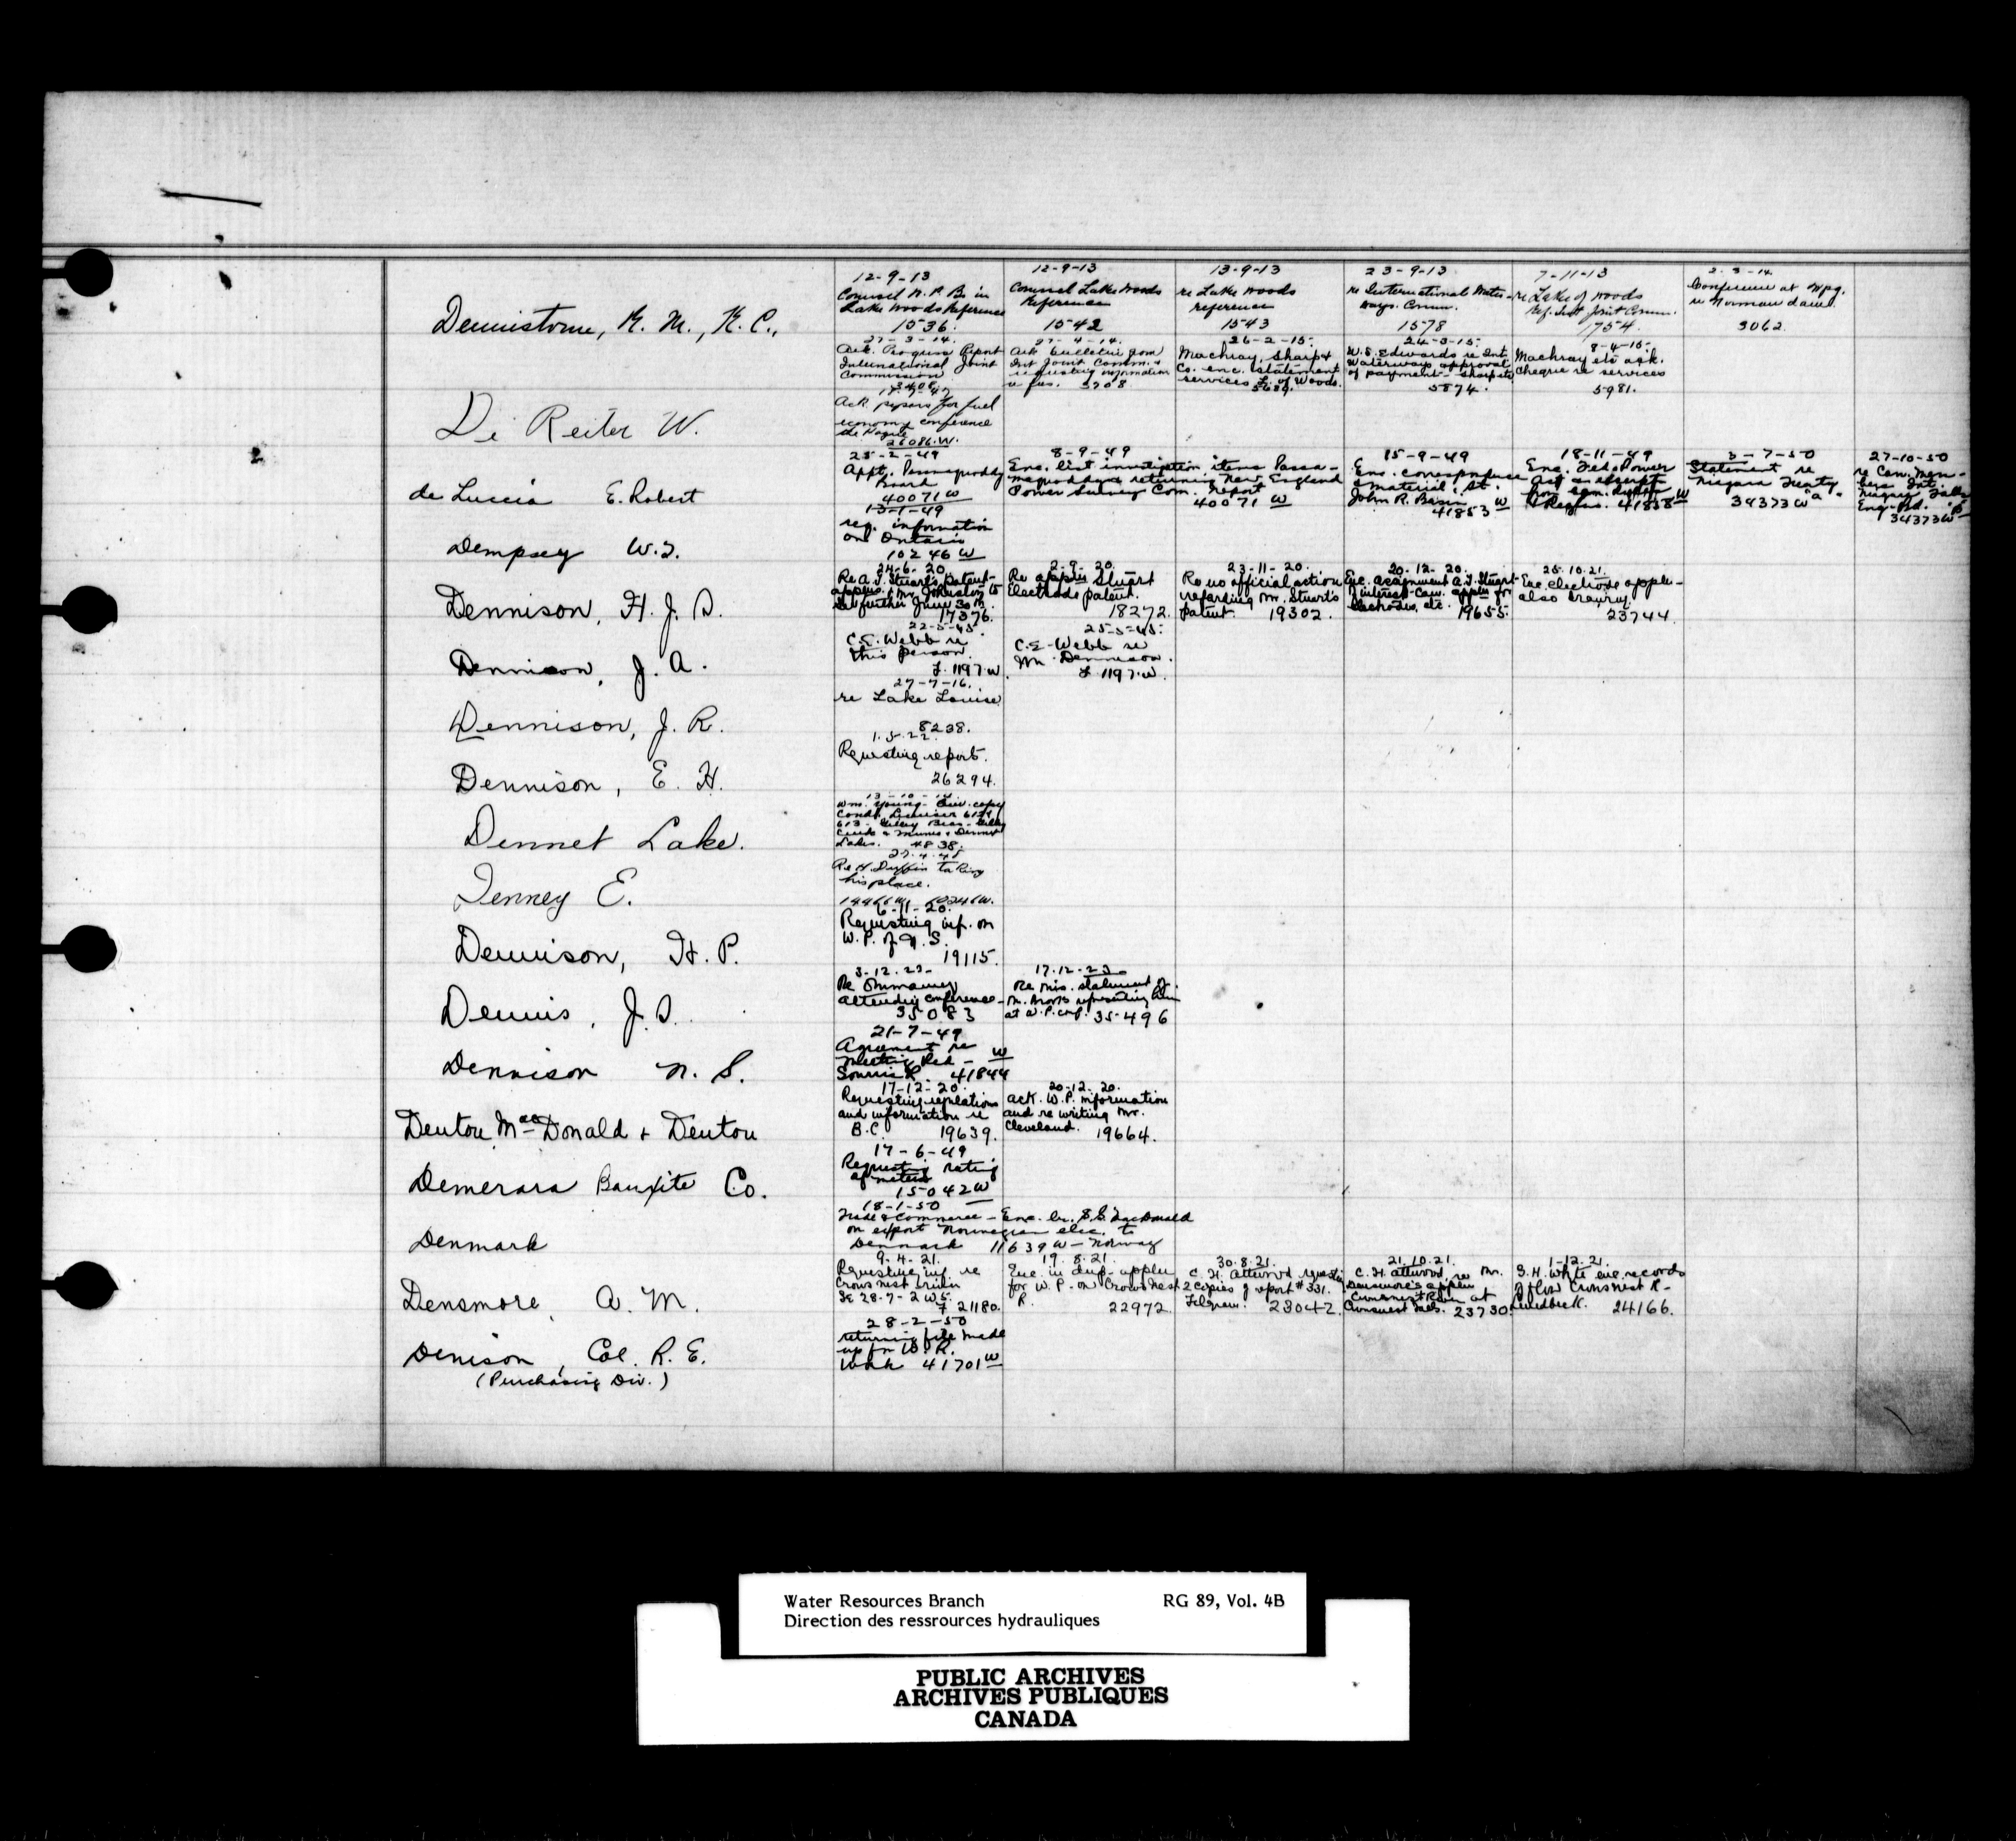 Dennistoun, R. M., K. C.,
12-9-13
Counsel N. P. B. in
Lake Woods Reference
1536.
12-9-13
Counsel Lake Woods
Reference
1542
13-9-13
re Lake Woods
reference
1543
23-9-13
re International Water-
ways. Comm.
1578
7-11-13
re Lake of Woods
Ref. Int Joint Comm.
1754.
2-3-14
Conference at Wpg.
re Norman dam.
3062.
27-3-14.
Ack. Progress Report
International Joint
Commission
27-4-14.
Ack bulletin from
Int Joint Comm. +
requesting information
3708
26-2-15.
Machray, Sharp +
Co. enc. statement
services L. of Woods.
5689.
24-3-15.
W. S. Edwards re Int.
Waterways approval
of payment - Sharp etc
5874.
8-4-15.
Machray etc ack.
cheque re services
5981.
De Reiter W.
Ack papers for fuel
economy conference
the Hague
26086.W.
de Luccia E. Robert
25-2-49
Appt. Passamaquoddy
Board
40071 W
8-9-49
Enc. list investigation items Passa-
maquoddy & returning New England
Power Survey Com. report
40071 W
15-9-49
Enc. correspondence
& material St.
John R. Basin
41853 W
18-11-49
Enc. Fed. Power
Act
& Regns. 41858 W
3-7-50
Statement re
Niagara Treaty
34373 W "a"
27-10-50
re Can. Mem-
bers Int.
Niagara Falls
Eng. Bd.
34373 W
Dempsey W. J.
13-1-49
req. information
on Ontario
10246 W
Dennison, H. J. S.
24-6-20.
Re A. T. Stuart's patent
applns. & Mr. Johnston to
June 30th.
17376.
2-9-20.
Re appln Stuart
Electrode patent.
18272.
23-11-20.
Re no official action
regarding Mr. Stuart's
patent. 19302.
20-12-20.
Enc. assignment A. T. Stuart
interest Can. appln for
electrodes, etc. 19655.
25.10.21.
Enc. electrode appln-
also
23744.
Dennison, J. A.
22-5-45.
C. E. Webb re
this person
F. 1197.W.
25-5-45.
C. E. Webb re
Mr. Dennison.
F 1197.W.
Dennison, J. R.
27-7-16.
re Lake Louise
8238.
Dennison, E. H.
1.5.22.
Requesting report.
26294.
Dennet Lake.
Wm. Young - copy
Lakes. 4838.
Denney E.
27.4.45
Re H. Duffin taking
his place.
10246W.
Dennison, H. P.
6-11-20.
Requesting inf. on
W. P. of N. S.
19115.
Dennis, J. S.
3-12.23-
attending conference-
35083
17.12-23
Re mis. statement of
at W. P. 35496
Dennison N. S.
21-7-49
Agreement re
Meeting Red -
Souris R. 41844 W
Denton MacDonald + Denton
17-12-20.
Requesting regulations
and information re
B.C. 19639.
20-12-20.
ack. W. P. information
and re writing Mr.
Cleveland. 19664.
Demerara Bauxite Co.
17-6-49
Requesting rating
of meters
15042 W
Denmark
18-1-50
Trade & Commerce - Enc. ltr. MacDonald
on export Norwegian elec. to
Denmark 11639 W - Norway
Densmore, A. M.
9.4.21.
Requesting inf re
Crows nest
SE 28-7-2 W 5.
F 21180.
19.8.21.
Enc. in dup. appln
for W. P. on Crows Nest
R. 22972.
30.8.21.
C. H. Attwood requesting
2 copies of report #331.
Telgram. 23042.
21.10.21.
C. H. Attwood re Mr.
Densmore's appln
Crowsnest River at
Crowsnest Falls. 23730.
1-12.21.
S. H. White enc. records
of flow Crowsnest R-
Lundbreck. 24166.
Denison, Col. R. E.
(Purchasing Div.)
28-2-50
returning file made
up for W. R.
Work 41701 W
Water Resources Branch RG 89, Vol. 4B
Direction des ressrources hydrauliques
PUBLIC ARCHIVES
ARCHIVES PUBLIQUES
CANADA